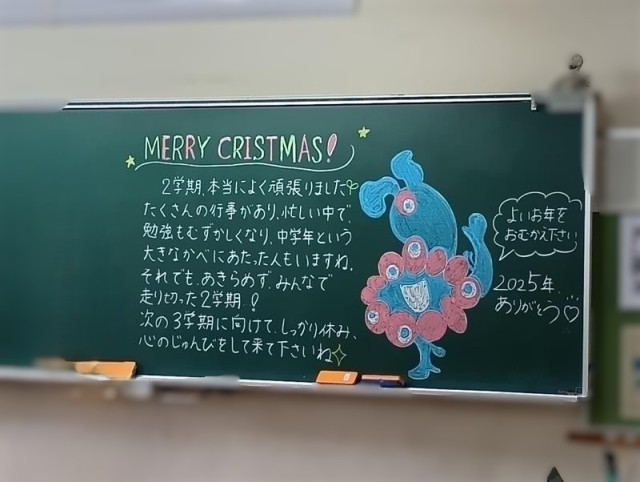 MERRY CRISTMAS!
2学期、本当によく頑張りました
たくさんの行事があり、忙しい中で
勉強もむずかしくなり、中学年という
大きなかべにあたった人もいますね。
それでも、あきらめず、みんなで
走り切った2学期!
次の3学期に向けて、しっかり休み、
心のじゅんびをして来て下さいね
よいお年を
おむかえ下さい
2025年、
ありがとう♡